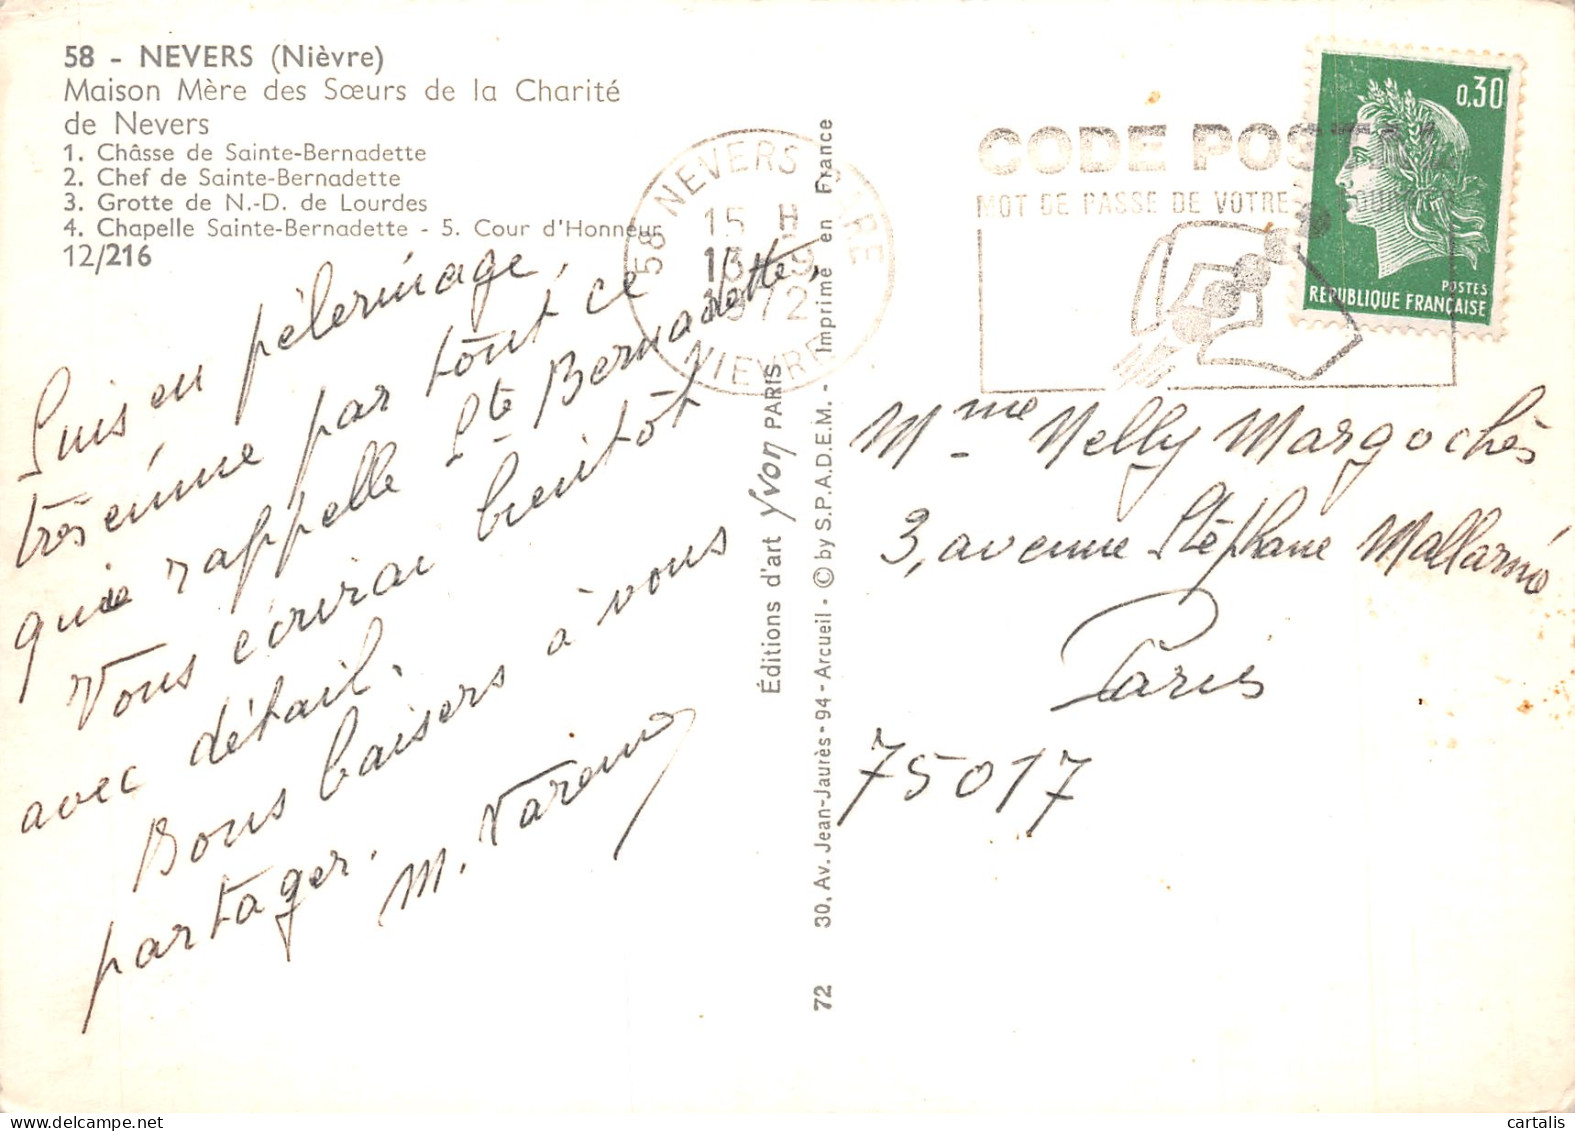 58 - NEVERS (Nièvre)
Maison Mère des Sœurs de la Charité
de Nevers
1. Châsse de Sainte-Bernadette
2. Chef de Sainte-Bernadette
3. Grotte de N.-D. de Lourdes
4. Chapelle Sainte-Bernadette - 5. Cour d'Honneur
12/216
Suis en pèlerinage,
très émue par tout ce
qui rappelle Ste Bernadette,
Vous écrirai bientôt
avec détail.
Bons baisers à vous
partager.
M. Varenne
58 NEVERS GARE
15 H
13 - 9
1972
NIEVRE
Éditions d'art Yvon PARIS
72 30, Av. Jean-Jaurès - 94 - Arcueil - © by S.P.A.D.E.M. - Imprimé en France
CODE POSTAL
MOT DE PASSE DE VOTRE COURRIER
0,30
POSTES
REPUBLIQUE FRANÇAISE
Mme Nelly Margochès
3, avenue Stéphane Mallarmé
Paris
75017
cartalis